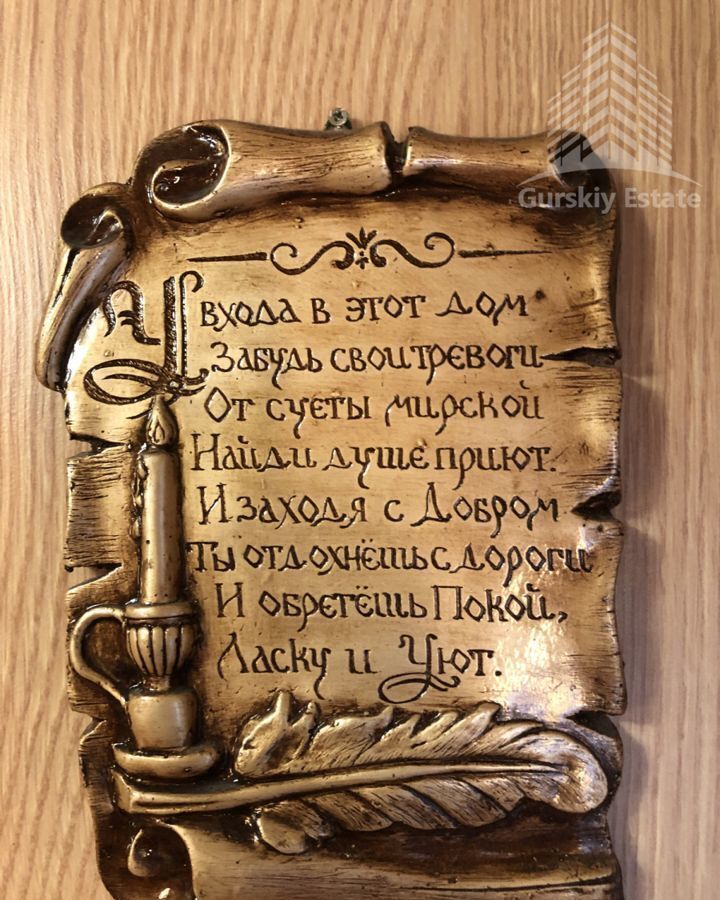 Gurskiy Estate
У входа в этот дом
Забудь свои тревоги
От суеты мирской
Найди душе приют.
И заходя с Добром
Ты отдохнёшь с дороги
И обретёшь Покой,
Ласку и Уют.